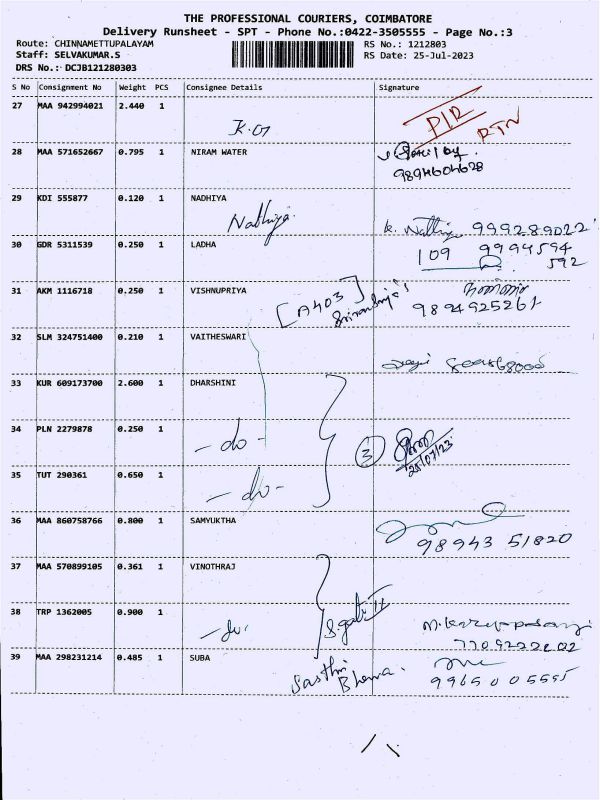 THE PROFESSIONAL COURIERS, COIMBATORE
Delivery Runsheet - SPT - Phone No.:0422-3505555 - Page No.:3
Route: CHINNAMETTUPALAYAM RS No.: 1212803
Staff: SELVAKUMAR.S RS Date: 25-Jul-2023
DRS No.: DCJB121280303
S No Consignment No Weight PCS Consignee Details Signature
27 MAA 942994021 2.440 1
PIR RTN
28 MAA 571652667 0.795 1 NIRAM WATER
9894604628
29 KDI 555877 0.120 1 NADHIYA
Nadhiya.
30 GDR 5311539 0.250 1 LADHA
109 9994594
592
31 AKM 1116718 0.250 1 VISHNUPRIYA
[A403] 9894925261
32 SLM 324751400 0.210 1 VAITHESWARI
33 KUR 609173700 2.600 1 DHARSHINI
34 PLN 2279878 0.250 1
- do - 3 25/07/23
35 TUT 290361 0.650 1
- do -
36 MAA 860758766 0.800 1 SAMYUKTHA
98943 51820
37 MAA 570899105 0.361 1 VINOTHRAJ
38 TRP 1362005 0.900 1
- do.
39 MAA 298231214 0.485 1 SUBA
Sasthri
Bhema. 99650 05555